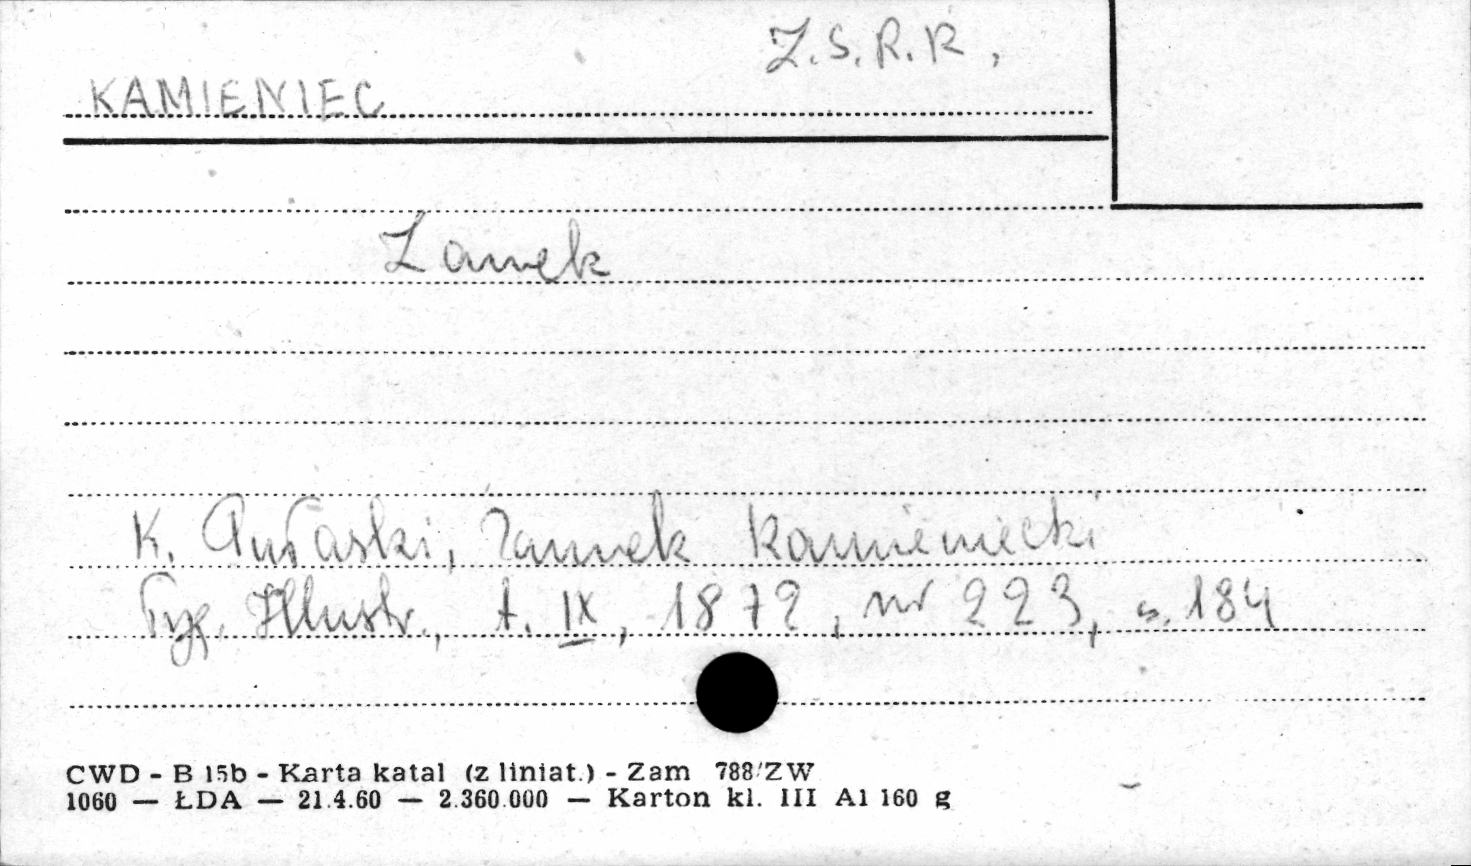 Z.S.R.R,
KAMIENIEC
Zamek
K. Pułaski, Zamek Kamieniecki
Tyg. Illustr., t. IX, 1872, nr 223, s. 184
CWD - B 15b - Karta katal (z liniat.) - Zam 788/ZW
1060 — ŁDA — 21.4.60 — 2.360.000 — Karton kl. III A1 160 g